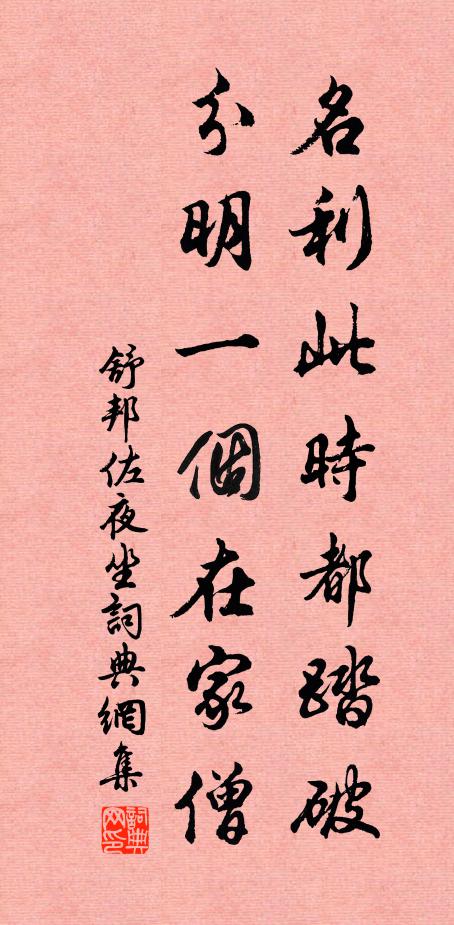 名利此時都踏破
分明一個在家僧
舒邦佐夜坐詞典網集
詞典网印